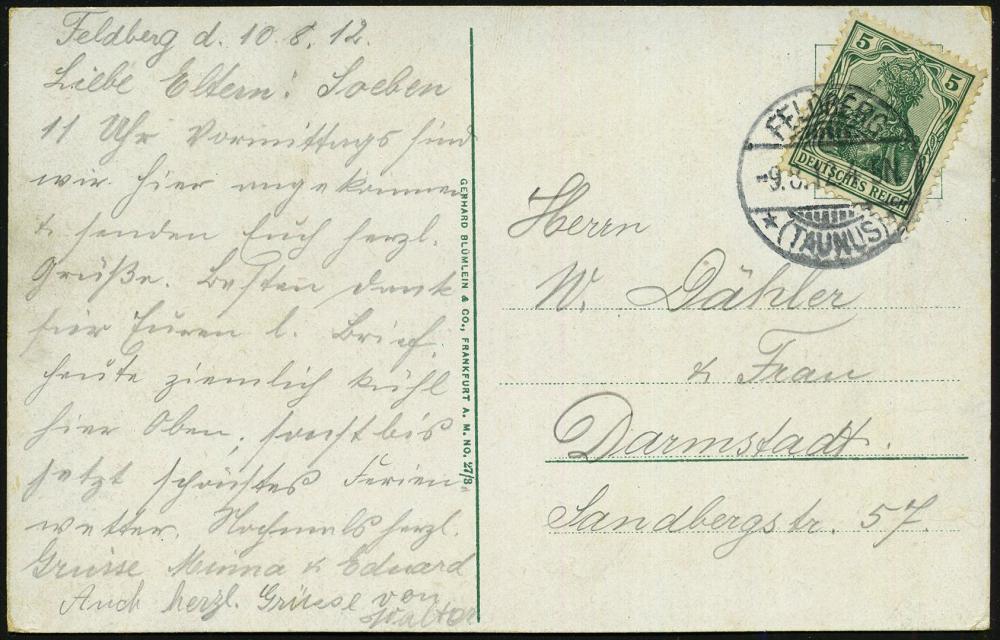 Feldberg d. 10.8.12.
Liebe Eltern! Soeben
11 Uhr Vormittags sind
wir hier angekommen
& senden Euch herzl.
Grüße. Besten Dank
für Euren l. Brief,
heute ziemlich kühl
hier Oben, sonst bis
jetzt schönstes Ferien-
wetter. Nochmals herzl.
Grüsse Minna & Eduard
Auch herzl. Grüsse von
Walter
GERHARD BLÜMLEIN & CO., FRANKFURT A. M. NO. 27/3
5 5
DEUTSCHES REICH
FELDBERG
-9.8.12
* (TAUNUS) *
Herrn
W. Dähler
& Frau
Darmstadt.
Sandbergstr. 57.